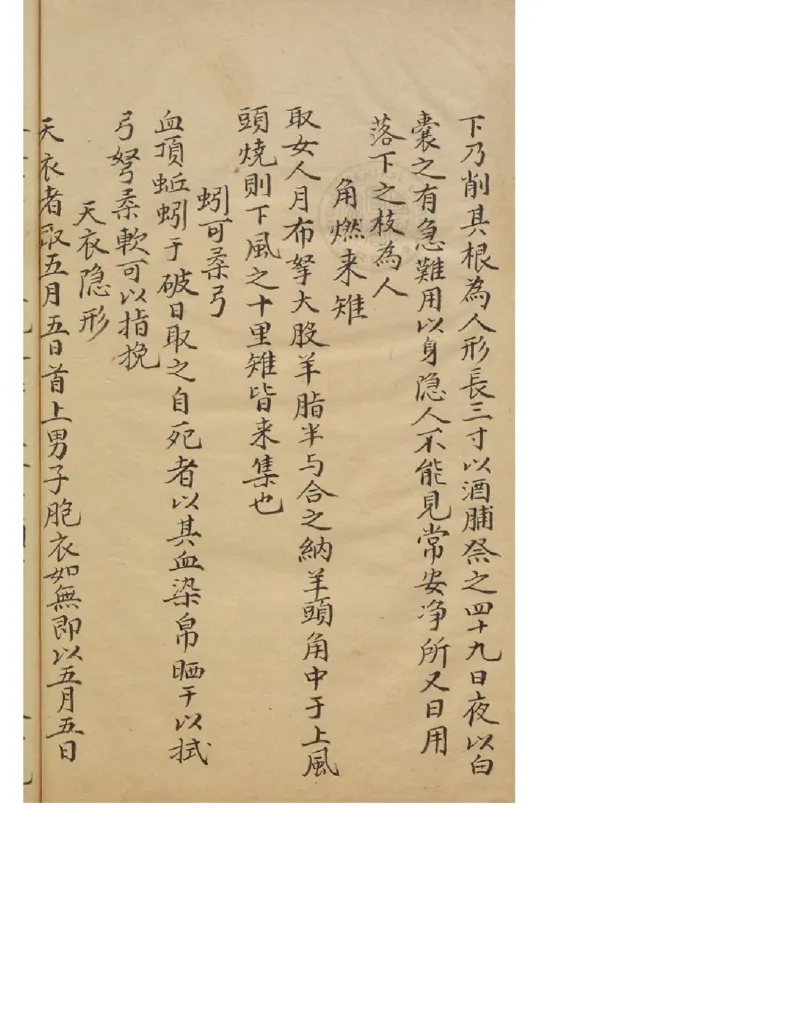 下乃削其根為人形長三寸以酒脯祭之四十九日夜以白
囊之有急難用以身隱人不能見常安净所又曰用
落下之枝為人
角燃来雉
取女人月布拏大股羊脂半与合之納羊頭角中于上風
頭燒則下風之十里雉皆来集也
蚓可柔弓
血頂蚯蚓于破日取之自死者以其血染帛晒干以拭
弓弩柔軟可以指挽
天衣隐形
天衣者取五月五日首上男子胞衣如無即以五月五日